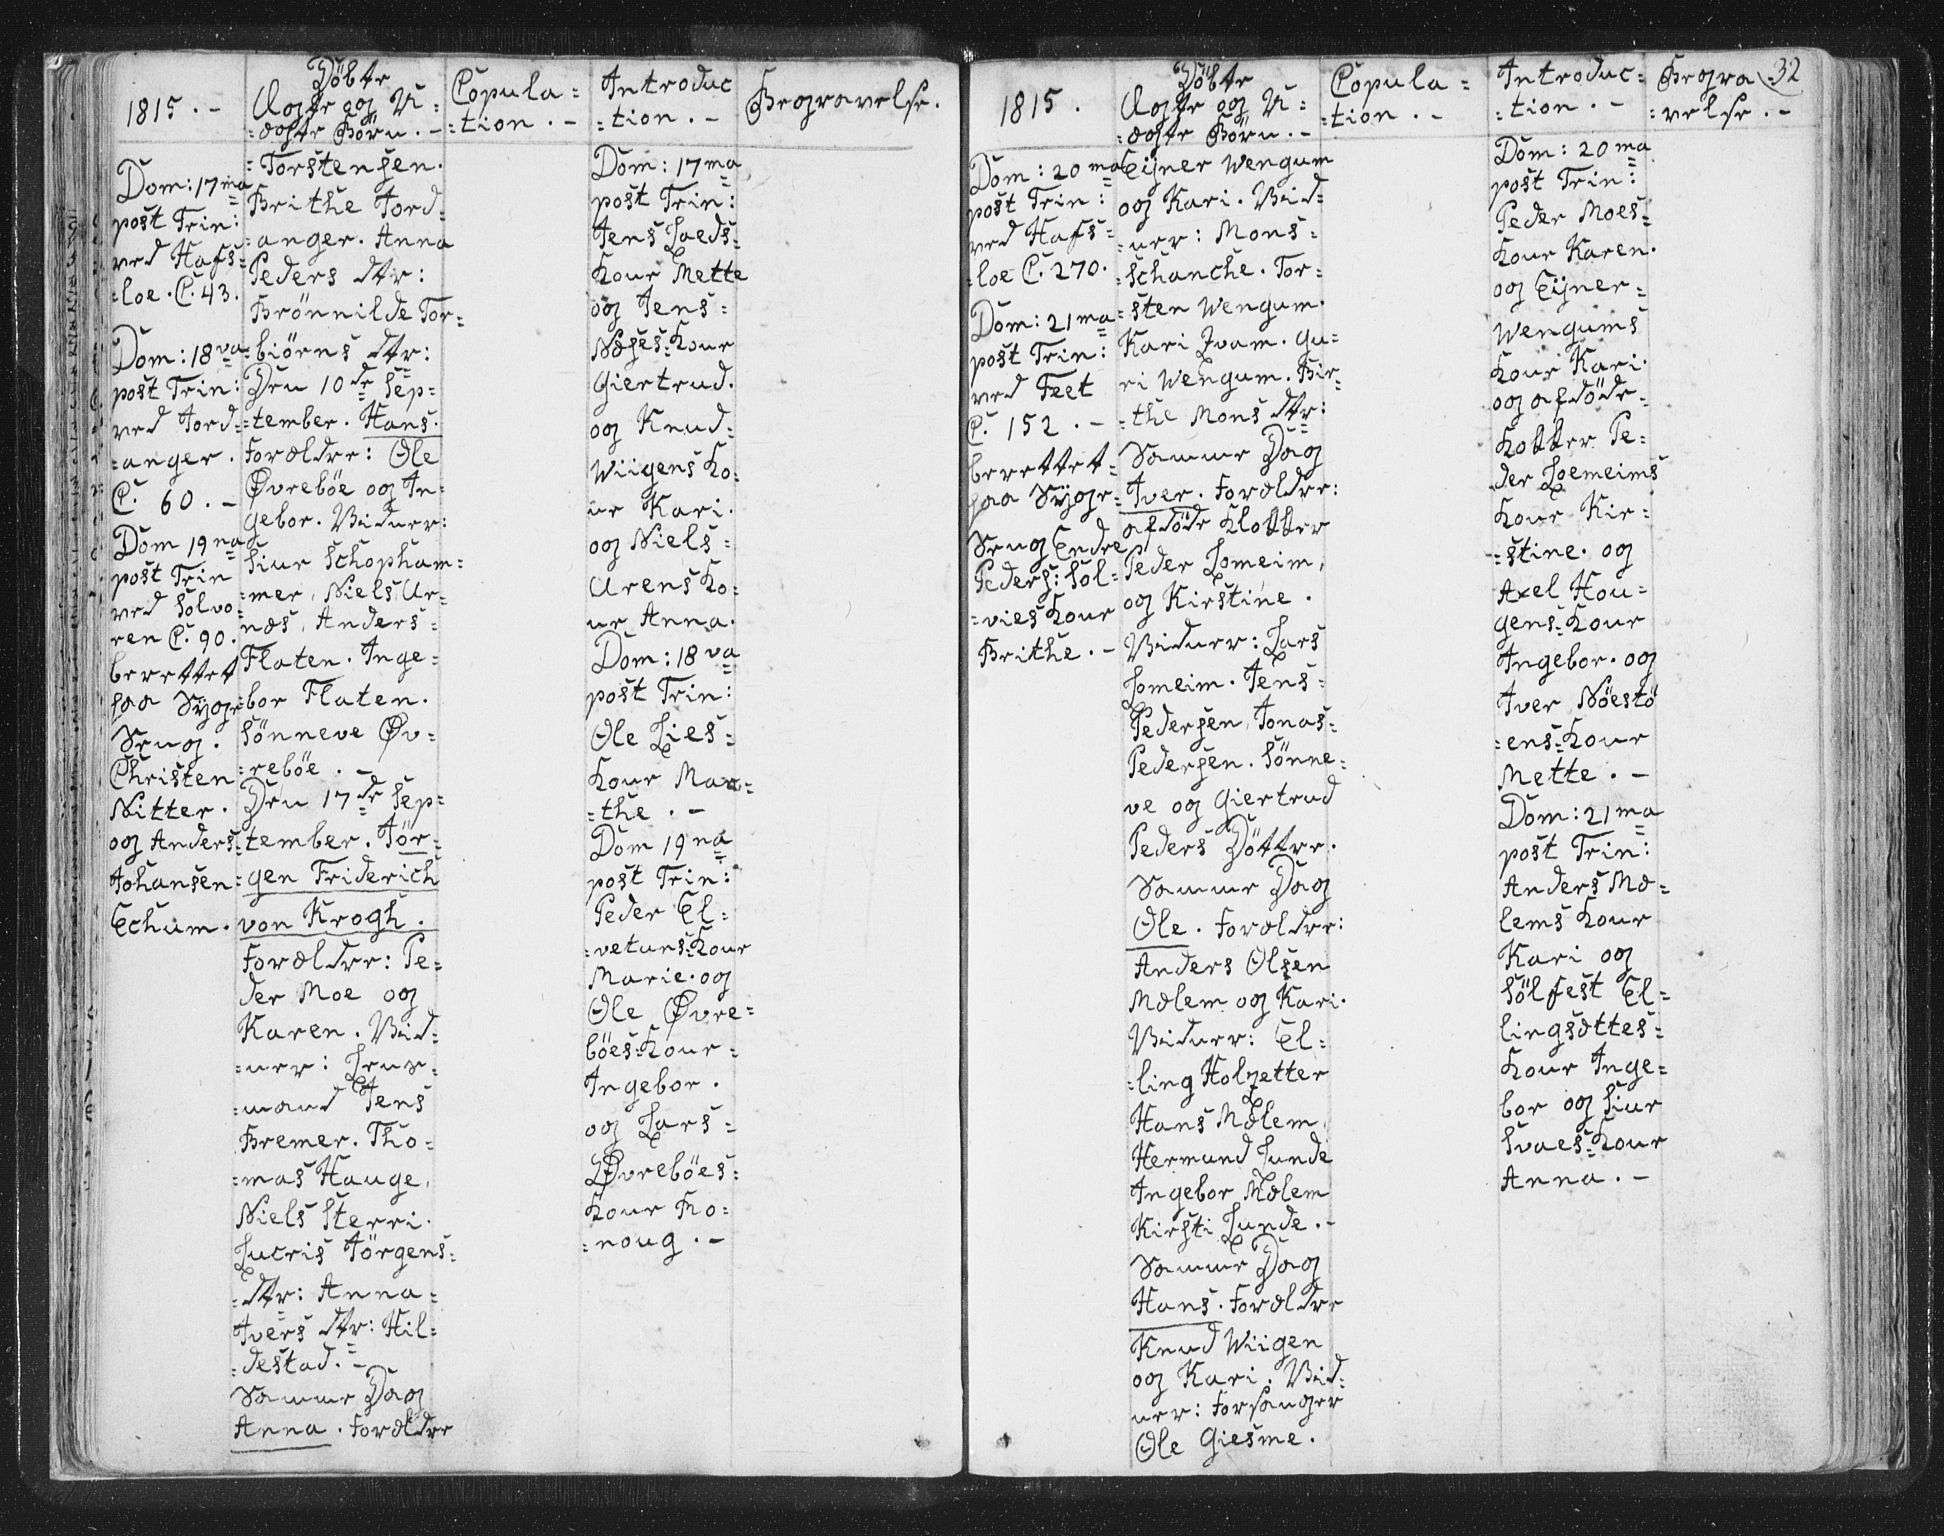 1815 . -
Döbte
Ægte og U=
=ægte Börn . -
Copula=
=tion . -
Introduc
=tion . -
Begravelse.
Dom: 17ma
post Trin:
ved Hafs=
=loe. C. 43.
Dom: 18va
post Trin:
ved Jord=
=anger.
C. 60 . -
Dom 19na
post Trin
ved Solvo=
ren C. 90.
berettet
paa Syge
Seng.
Christen
Nitter.
og Anders
Johansen
Echum.
=Torstensen.
Brithe Jord=
=anger. Anna
Peders dtr:
Brönnilde Tor=
=biörns dtr:
Den 10de Sep=
=tember. Hans.
Forældre: Ole
Øvreböe og In=
gebor. Vidner:
Siur Schopham=
=mer, Niels Ur=
næs, Anders=
Flaten. Inge=
=bor Flaten.
Sönneve Øv=
=reböe . -
Den 17de Sep=
=tember. Jör=
=gen Friderich
von Krogh.
Forældre: Pe=
der Moe og
Karen. Vid=
=ner: Lens=
=mand Jens
Bremer. Tho=
=mas Hauge,
Niels Sterri.
Lucris Jörgens=
=dtr: Anna=
Ivers dtr: Hil=
=destad. -
Samme Dag
Anna. Forældre
Dom: 17ma
post Trin:
Jens Loeds=
Kone Mette
og Jens=
Næses=Kone
Giertrud.
og Knud=
Wiigens Ko=
ne Kari.
og Niels=
Urens Ko=
ne Anna.
Dom: 18va
post Trin:
Ole Lies=
Kone Mar=
=the . -
Dom 19na
post Trin:
Peder El=
=vetuns=Kone
Marie. og
Ole Øvre=
böes=Kone=
Ingebor.
og Lars=
Øvreböes=
Kone Ro=
=noug . -
32
1815 .
Döbte
Ægte og U=
=ægte Börn . -
Copula=
=tion . -
Introduc=
=tion . -
Begra
=velse . -
Dom: 20ma
post Trin:
ved Hafs=
=loe C. 270.
Dom: 21ma
post Trin:
ved Feet
C. 152 . -
berettet=
paa Syge=
Seng Endre
Peders: Söl=
=vies Kone
Brithe . -
Ejner Wengum
og Kari. Vid=
=ner: Mons=
=Schanche. Tor=
=sten Wengum.
Kari Qvam. Gu=
ri Wengum. Bir=
=the Mons dtr:
Samme Dag
Iver. Forældre:
afdöde Klokker
Peder Lomeim,
og Kirstine.
Vidner: Lars
Lomeim. Jens=
Pedersen, Jonas=
Pedersen. Sönne=
ve og Giertrud
Peders Döttre.
Samme Dag
Ole. Forældre:
Anders Olsen
Mælem og Kari.
Vidner: El=
=ling Holzetter
Hans Mælem,
Hermund Lunde
Ingebor Mælem
Kirsti Lunde . -
Samme Dag
Hans. Forældre
Knud Wiigen
og Kari. Vid=
ner: Forsanger
Ole Giesme.
Dom: 20ma
post Trin:
Peder Moes=
Kone Karen.
og Ejner=
Wengums
Kone Kari.
og afdöde=
Kokker Pe=
der Loemeims
Kone Kir=
=stine. og
Axel Hou=
gens=Kone
Ingebor. og
Iver Nöestö
=ens=Kone
Mette . -
Dom: 21ma
post Trin:
Anders Mæ=
lems Kone
Kari og
Sölfest El=
lingsættes=
Kone Inge=
bor og Siur
Svaes=Kone
Anna . -